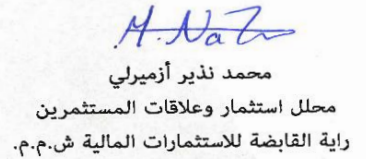 محمد نذير أزميرلي
محلل استثمار وعلاقات المستثمرين
راية القابضة للاستثمارات المالية ش.م.م.